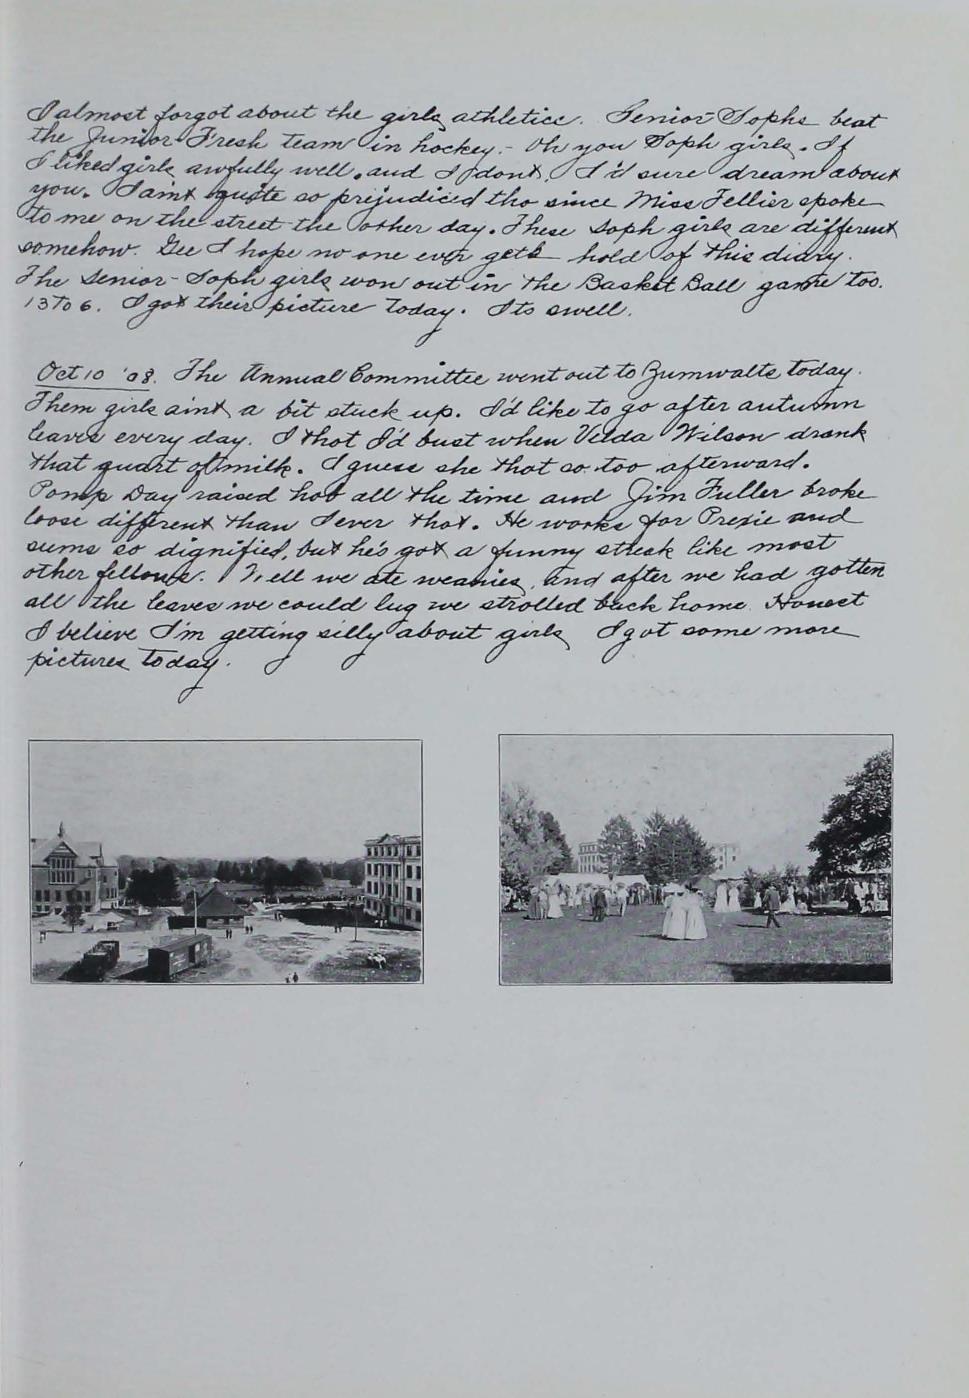 I almost forgot about the girls athletics. Senior-Sophs beat
the Junior-Fresh team in hockey.- Oh you Soph girls. If
I liked girls awfully well, and I dont, I'd sure dream about
you. I aint quite so prejudiced tho since Miss Tellier spoke
to me on the street the other day. These Soph girls are different
somehow. Gee I hope no one ever gets hold of this diary.
The Senior-Soph girls won out in the Basket Ball game too.
13 to 6. I got their picture today. Its swell.
Oct 10 '08. The Annual Committee went out to Zumwalts today.
Them girls aint a bit stuck up. I'd like to go after autumn
leaves every day. I thot I'd bust when Velda Wilson drank
that quart of milk. I guess she thot so too afterward.
Pomp Day raised hob all the time and Jim Fuller broke
loose different than I ever thot. He works for Prexie and
sums so dignified, but he's got a funny streak like most
other fellows. Well we ate weanies, and after we had gotten
all the leaves we could lug we strolled back home. Honest
I believe I'm getting silly about girls I got some more
pictures today.